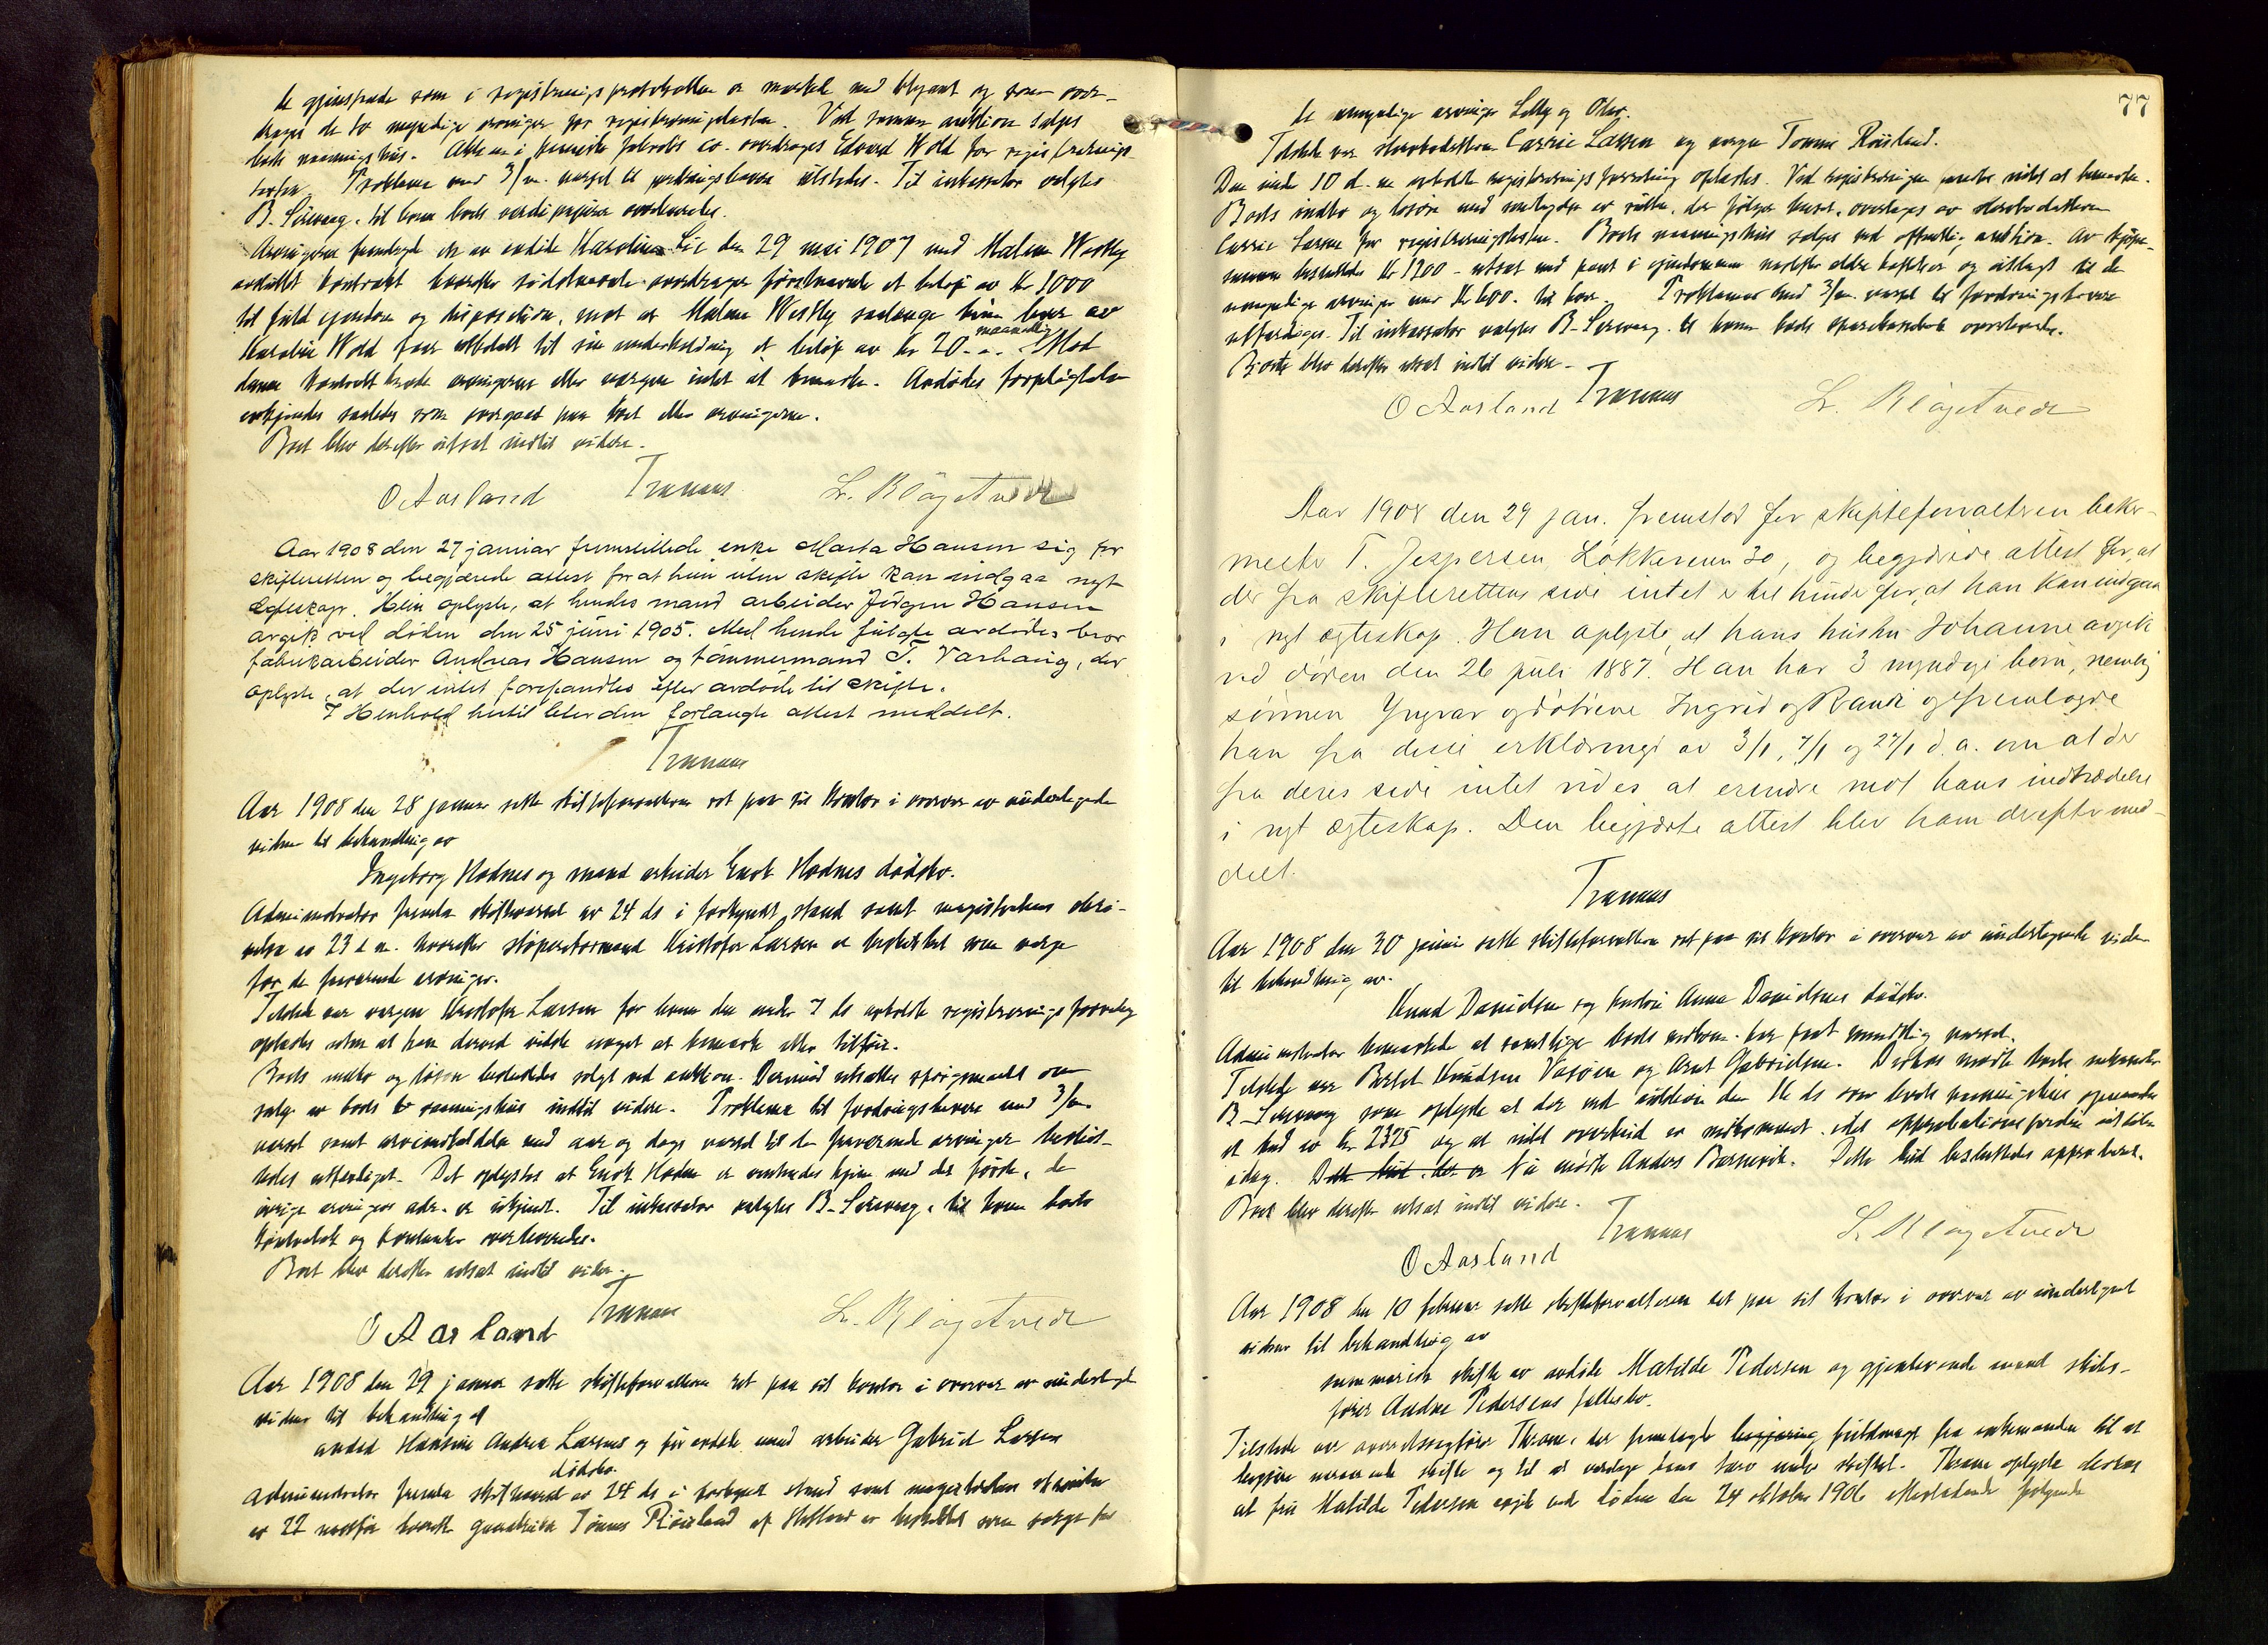 de gjenstande som i registreringsprotokollen er merket med blyant og som over-
drages de to myndige arvinger for registreringstaksten. Ved samme auktion selges
boets vaaningshus. Aktierne i overdrages Edvard Wold for registrerings-
taksten. Proklama med 3/m. varsel til fordringshavere utstedes. Til inkassator valgtes
B. Sirevaag, til hvem boets verdipapirer overleveredes.
Arvingerne fremlagde en av avdøde Karoline Lie den 29 mai 1907 med Malene Westby
avsluttet kontrakt hvorefter sidstnævnte overdrager førstnævnte et beløp av kr 1000
til fuld eiendom og disposition, mot at Malene Westby saalænge hun lever av
Karoline Wold faar utbetalt til sin underholdning et beløp av kr 20.-. maanedlig. Mod
denne kontrakt havde arvingerne eller værgen intet at bemerke. Avdødes forpligtelse
erkjendes saaledes som overgaaet paa boet eller arvingerne.
Boet blev derefter utsat indtil videre.
O Aarland Tranaas L. Kløgetvedt
Aar 1908 den 27 januar fremstillede enke Marta Hansen sig for
skifteretten og begjærede attest for at hun uten skifte kan indgaa nyt
egteskap. Hun oplyste, at hendes mand arbeider Jørgen Hansen
avgik ved døden den 25 juni 1905. Med hende fulgte avdødes bror
fabrikarbeider Andreas Hansen og tømmermand T. Varhaug, der
oplyste, at der intet forefandtes efter avdøde til skifte.
I Henhold hertil blev den forlangte attest meddelt.
Tranaas
Aar 1908 den 28 januar satte skifteforvalteren ret paa sit kontor i overvær av undertegnede
vidner til behandling av
Ingeborg Hodnes og mand arbeider Enok Hodnes dødsbo.
Administrator fremla skiftevarsel av 24 ds i forkyndt stand samt magistratens skri-
velse av 23 d.m. hvorefter støperiformand Kristofer Larsen er beskikket som værge
for de fraværende arvinger.
Tilstede var værgen Kristofer Larsen for hvem den under 7 ds avholdte registreringsforretning
oplæstes uten at han derved vidste noget at bemerke eller tilføie.
Boets indbo og løsøre besluttedes solgt ved auktion. Derimod utsættes spørgsmaalet om
salg av boets vaaningshus indtil videre. Proklama til fordringshavere med 3/m.
varsel samt arveindkaldelse med aar og dags varsel til de fraværende arvinger beslut-
tedes utfærdiget. Det oplystes at Enok Hodne er ventendes hjem med det første, de
øvrige arvingers adr. er ukjendt. Til inkassator valgtes B. Sirevaag, til hvem boets
kontrabok og kontanter overleveredes.
Boet blev derefter utsat indtil videre.
O Aarland Tranaas L. Kløgetvedt
Aar 1908 den 29 januar satte skifteforvalteren ret paa sit kontor i overvær av undertegnede
vidner til behandling af
avdød Hansine Andrea Larsens og før avdøde mand arbeider Gabriel Larsen
dødsbo.
Administrator fremla skiftevarsel av 24 ds i forkyndt stand samt magistratens skrivelse
av 22 næstfør hvorefter gaardbruker Tønnes Røisland af Hetland er beskikket som værge for
77
de umyndige arvinger Selly og Oskar.
Tilstede var sterbodatteren Carrie Larsen og værgen Tønnes Røisland.
Den under 10 d.m. avholdte registreringsforretning oplæstes. Ved registreringen fandtes intet at bemerke.
Boets indbo og løsøre med undtagelse av, der følger huset, overtages av sterbodatteren
Carrie Larsen for registreringstaksten. Boets vaaningshus selges ved offentlig auktion. Av kjøpe-
summen besluttedes kr 1200 - utsat med pant i eiendommen næstefter ældre heftelser og utlagt til de
umyndige arvinger med kr 600.- til hver. Proklamaer med 3/m. varsel til fordringshavere
utfærdiges. Til inkassator valgtes B. Sirevaag, til hvem boets sparebankbok overleveredes.
Boet blev derefter utsat indtil videre.
O Aarland Tranaas L. Kløgetvedt
Aar 1908 den 29 jan. fremstod for skifteforvalteren baker-
mester T. Jespersen, Løkkeveien 30, og begjærede attest for, at
der fra skifterettens side intet er til hinder for, at han kan indgaa
i nyt ægteskap. Han oplyste, at hans hustru Johanne avgik
ved døden den 26 juli 1887. Han har 3 myndige børn, nemlig
sønnen Yngvar og døtrene Ingrid og Randi og fremlagde
han fra disse erklæringer av 3/1, 7/1 og 27/1 d.a. om at der
fra deres side intet vides at erindre mot hans indtrædelse
i nyt ægteskap. Den begjærte attest blev ham derefter med-
delt.
Tranaas
Aar 1908 den 30 januar satte skifteforvalteren ret paa sit kontor i overvær av undertegnede vidner
til behandling av.
Knud Davidsen og hustru Anna Davidsens dødsbo.
Administrator bemerkede at samtlige boets arvinger har faat mundtlig varsel.
Tilstede var Bertel Knudsen og Arnt Gabrielsen. Derhos mødte boets inkassator
B. Sirevaag som oplyste at der ved auktion den ds over boets vaaningshus opnaaedes
et bud av kr. 2325 og at intet overbud er indkommet, idet approbationsfristen utløber
idag. Dette bud Anders. Dette bud besluttedes approberet.
Boet blev derefter utsat indtil videre.
O Aarland Tranaas L. Kløgetvedt
Aar 1908 den 10 februar satte skifteforvalteren ret paa sit kontor i overvær av undertegnede
vidner til behandling av
summarisk skifte av avdøde Matilde Pedersen og gjenlevende mand skibs-
fører Andr. Pedersens fællesbo.
Tilstede var overretssagfører Thrane, der fremlagde begjæring fuldmagt fra enkemanden til at
begjære nærværende skifte og til at varetage hans tarv under skiftet. Thrane oplyste derhos
at fru Matilde Pedersen avgik ved døden den 24 oktober 1906 efterladende følgende